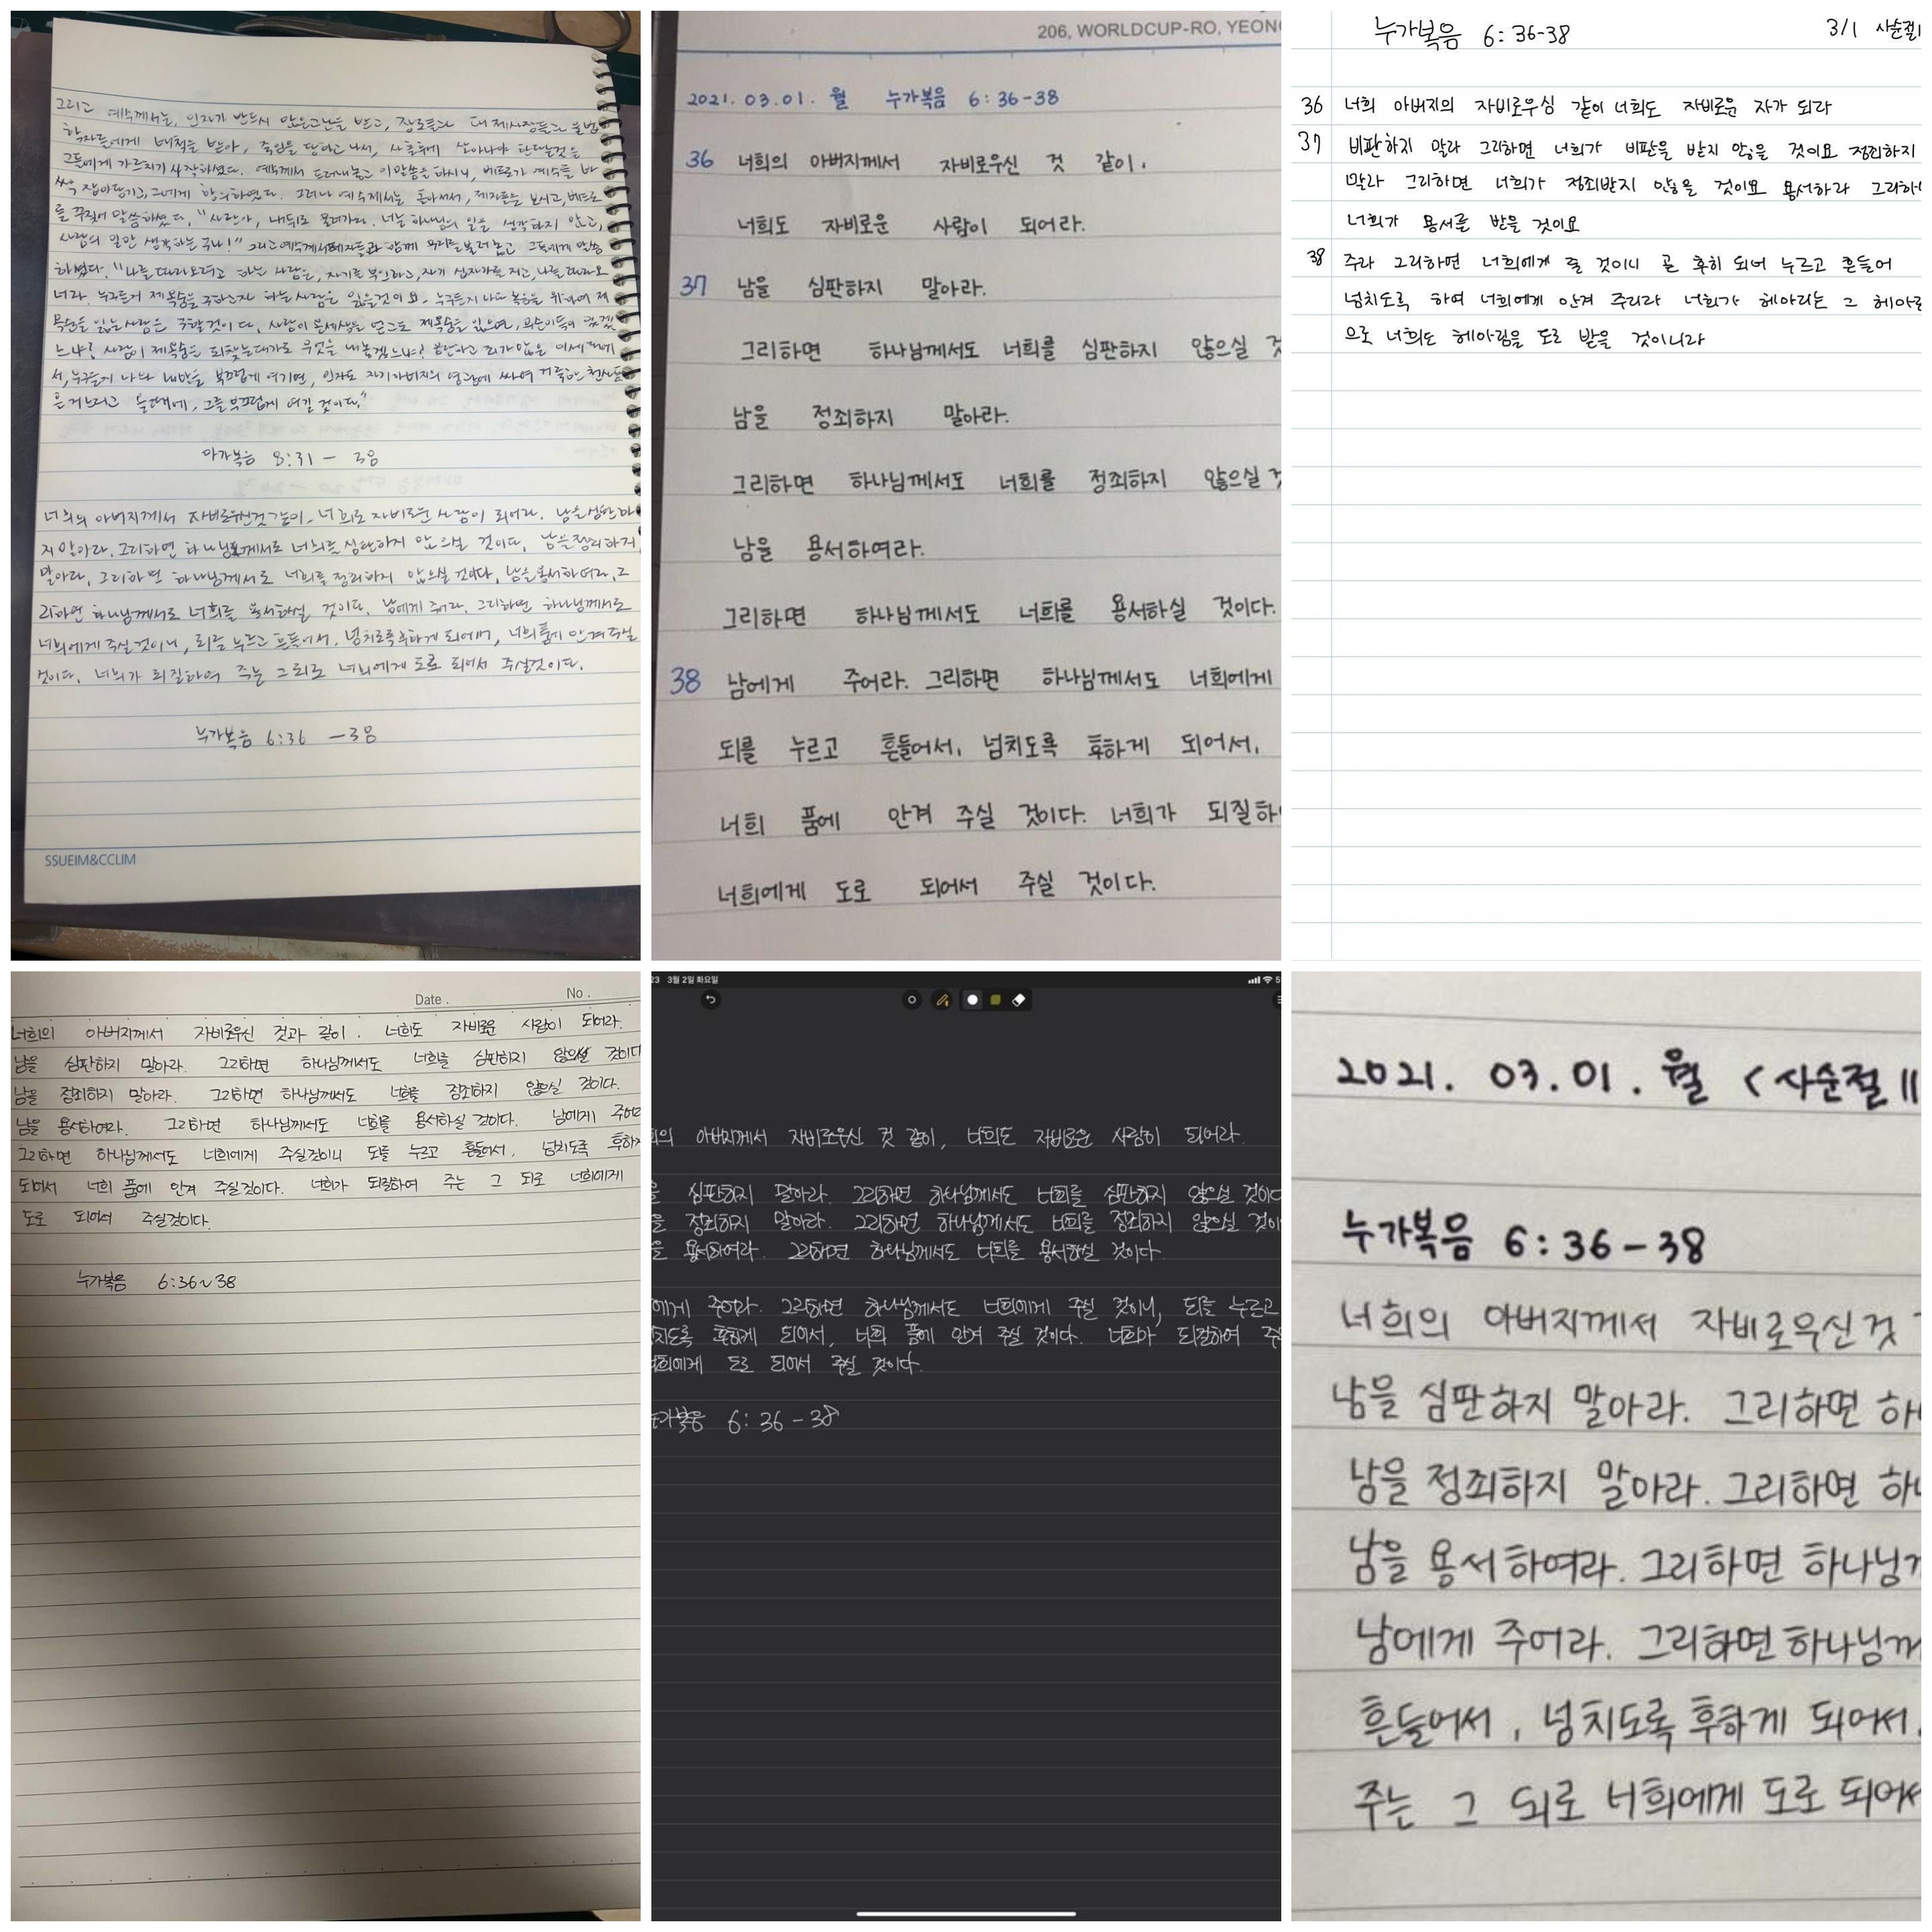 그리고 예수께서는, 인자가 반드시 많은 고난을 받고, 장로들과 대제사장들과 율법
학자들에게 배척을 받아, 죽임을 당하고 나서, 사흘후에 살아나야 한다는것을
그들에게 가르치기 시작하셨다. 예수께서 드러내놓고 이 말씀을 하시니, 베드로가 예수를 바
싹 잡아당기고, 그에게 항의하였다. 그러나 예수께서는 돌아서서, 제자들을 보시고, 베드로
를 꾸짖어 말씀하셨다, "사탄아, 내 뒤로 물러가라. 너는 하나님의 일을 생각하지 않고,
사람의 일만 생각하는 구나!" 그리고 예수께서 제자들과 함께 무리를 불러 놓고 그들에게 말씀
하셨다. "나를 따라오려고 하는 사람은, 자기를 부인하고, 자기 십자가를 지고, 나를 따라오
너라. 누구든지 제 목숨을 구하고자 하는 사람은 잃을것이요, 누구든지 나와 복음을 위하여 제
목숨을 잃는 사람은 구할것이다, 사람이 온세상을 얻고도 제목숨을 잃으면, 무슨 이득이 있겠
느냐? 사람이 제목숨을 되찾는 대가로 무엇을 내놓겠느냐? 음란하고 죄가 많은 이 세대에
서, 누구든지 나와 내 말을 부끄럽게 여기면, 인자도 자기 아버지의 영광에 싸여 거룩한 천사들
을 거느리고 올 때에, 그를 부끄럽게 여길 것이다."
마가복음 8:31 - 38
너희의 아버지께서 자비로우신것 같이, 너희도 자비로운 사람이 되어라. 남을 심판하
지 말아라. 그리하면 하나님께서도 너희를 심판하지 않으실 것이다, 남을 정죄하지
말아라, 그리하면 하나님께서도 너희를 정죄하지 않으실 것이다, 남을 용서하여라, 그
리하면 하나님께서도 너희를 용서하실 것이다. 남에게 주어라. 그리하면 하나님께서도
너희에게 주실것이니, 되를 누르고 흔들어서, 넘치도록 후하게 되어서, 너희 품에 안겨 주실
것이다. 너희가 되질하여 주는 그 되로 너희에게 도로 되어서 주실것이다.
누가복음 6:36 - 38
SSUEIM&CCLIM
206, WORLDCUP-RO, YEON
2021. 03. 01. 월 누가복음 6:36-38
36 너희의 아버지께서 자비로우신 것 같이.
너희도 자비로운 사람이 되어라.
37 남을 심판하지 말아라.
그리하면 하나님께서도 너희를 심판하지 않으실
남을 정죄하지 말아라.
그리하면 하나님께서도 너희를 정죄하지 않으실
남을 용서하여라.
그리하면 하나님께서도 너희를 용서하실 것이다.
38 남에게 주어라. 그리하면 하나님께서도 너희에게
되를 누르고 흔들어서, 넘치도록 후하게 되어서,
너희 품에 안겨 주실 것이다. 너희가 되질하
너희에게 도로 되어서 주실 것이다.
누가복음 6:36-38 3/1 사순절
36 너희 아버지의 자비로우심 같이 너희도 자비로운 자가 되라
37 비판하지 말라 그리하면 너희가 비판을 받지 않을 것이요 정죄하지
말라 그리하면 너희가 정죄받지 않을 것이요 용서하라 그리하
너희가 용서를 받을 것이요
38 주라 그리하면 너희에게 줄 것이니 곧 후히 되어 누르고 흔들어
넘치도록 하여 너희에게 안겨 주리라 너희가 헤아리는 그 헤아림
으로 너희도 헤아림을 도로 받을 것이니라
Date . No .
너희의 아버지께서 자비로우신 것과 같이. 너희도 자비로운 사람이 되어라.
남을 심판하지 말아라. 그리하면 하나님께서도 너희를 심판하지 않으실 것이다
남을 정죄하지 말아라. 그리하면 하나님께서도 너희를 정죄하지 않으실 것이다.
남을 용서하여라. 그리하면 하나님께서도 너희를 용서하실 것이다. 남에게 주어라
그리하면 하나님께서도 너희에게 주실것이니 되를 누르고 흔들어서, 넘치도록 후하게
되어서 너희 품에 안겨 주실것이다. 너희가 되질하여 주는 그 되로 너희에게
도로 되어서 주실것이다.
누가복음 6:36~38
23 3월 2일 화요일
희의 아버지께서 자비로우신 것 같이, 너희도 자비로운 사람이 되어라.
을 심판하지 말아라. 그리하면 하나님께서도 너희를 심판하지 않으실 것이다
을 정죄하지 말아라. 그리하면 하나님께서도 너희를 정죄하지 않으실 것이
을 용서하여라. 그리하면 하나님께서도 너희를 용서하실 것이다.
에게 주어라. 그리하면 하나님께서도 너희에게 주실 것이니, 되를 누르고
치도록 후하게 되어서, 너희 품에 안겨 주실 것이다. 너희가 되질하여 주
너희에게 도로 되어서 주실 것이다.
누가복음 6:36-38
2021. 03.01. 월 <사순절 11
누가복음 6:36-38
너희의 아버지께서 자비로우신 것
남을 심판하지 말아라. 그리하면 하
남을 정죄하지 말아라. 그리하면 하나
남을 용서하여라. 그리하면 하나님께
남에게 주어라. 그리하면 하나님께
흔들어서, 넘치도록 후하게 되어서.
주는 그 되로 너희에게 도로 되어서